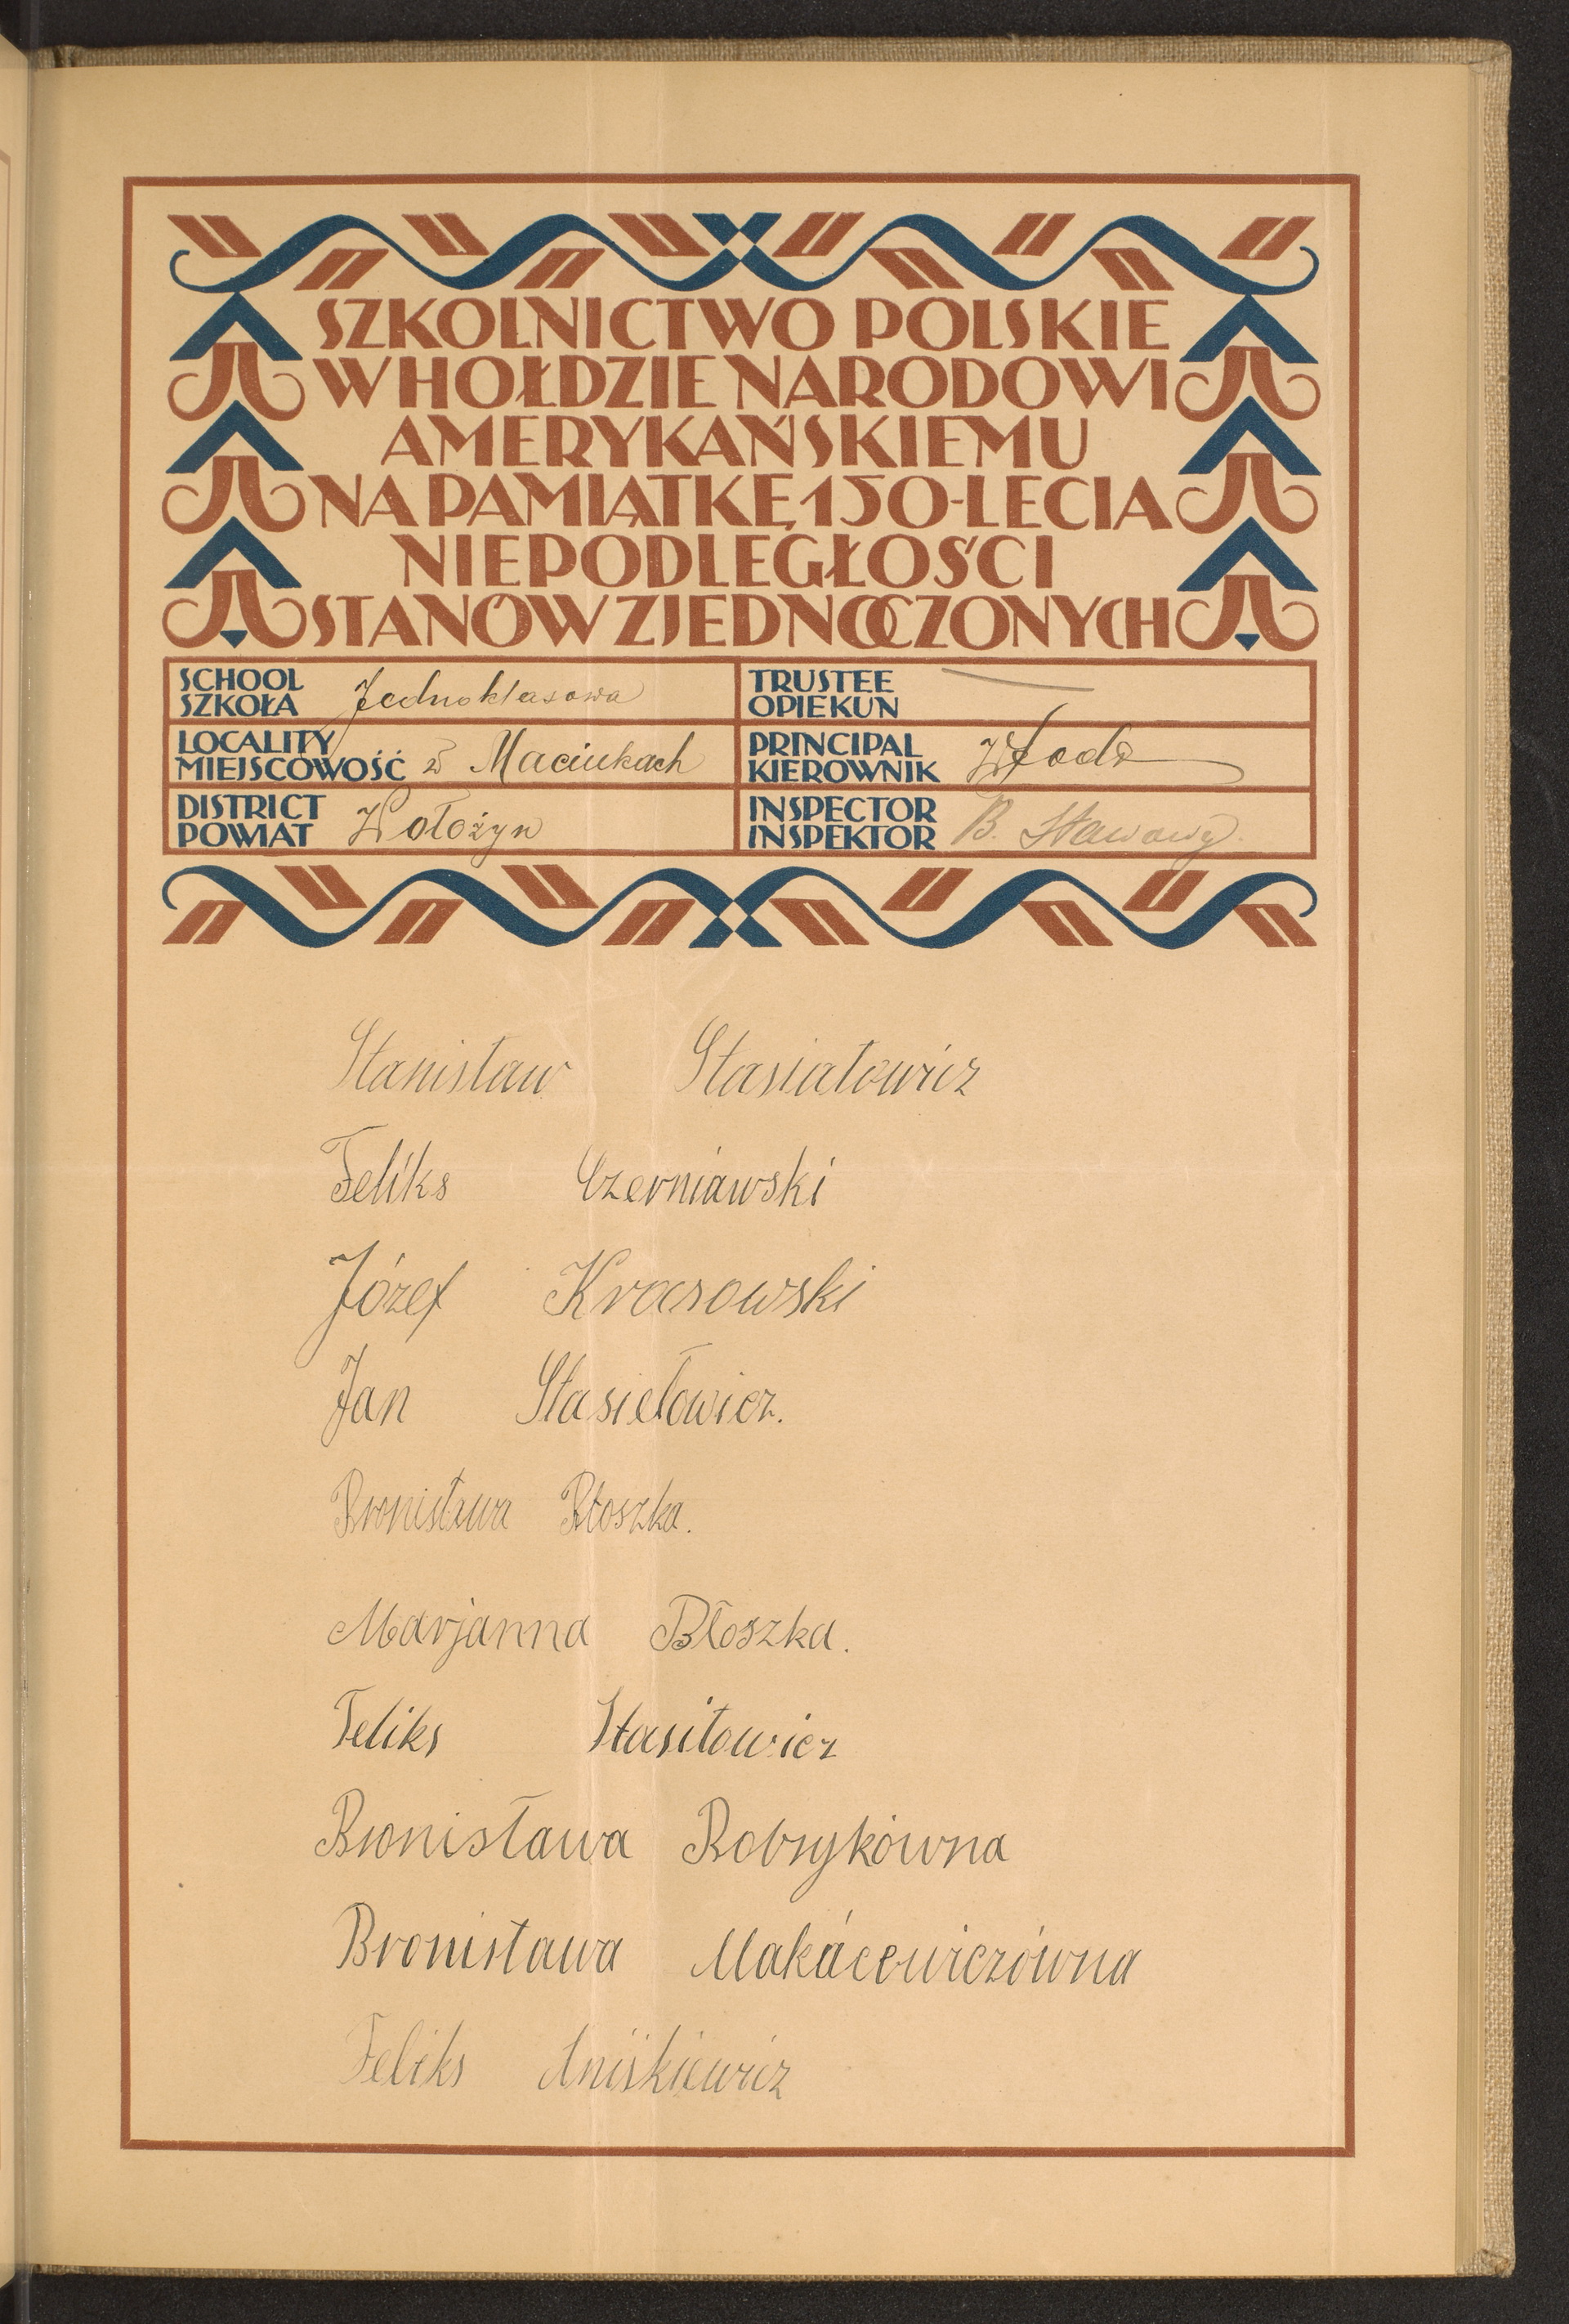 SZKOLNICTWO POLSKIE
W HOŁDZIE NARODOWI
AMERYKAŃSKIEMU
NA PAMIĄTKĘ 150-LECIA
NIEPODLEGŁOŚCI
STANÓW ZJEDNOCZONYCH
SCHOOL
SZKOŁA Jednoklasowa
TRUSTEE
OPIEKUN
LOCALITY
MIEJSCOWOŚĆ w Maciukach
PRINCIPAL
KIEROWNIK
DISTRICT
POWIAT Wołożyn
INSPECTOR
INSPEKTOR B. Stawowy
Stanisław Stasiałowicz
Feliks Czerniawski
Józef Krasowski
Jan Stasiełowicz.
Bronisława Błoszka.
Marjanna Błoszka.
Feliks Stasiłowicz
Bronisława Bobrykówna
Bronisława Makácewiczówna
Feliks Aniśkiewicz